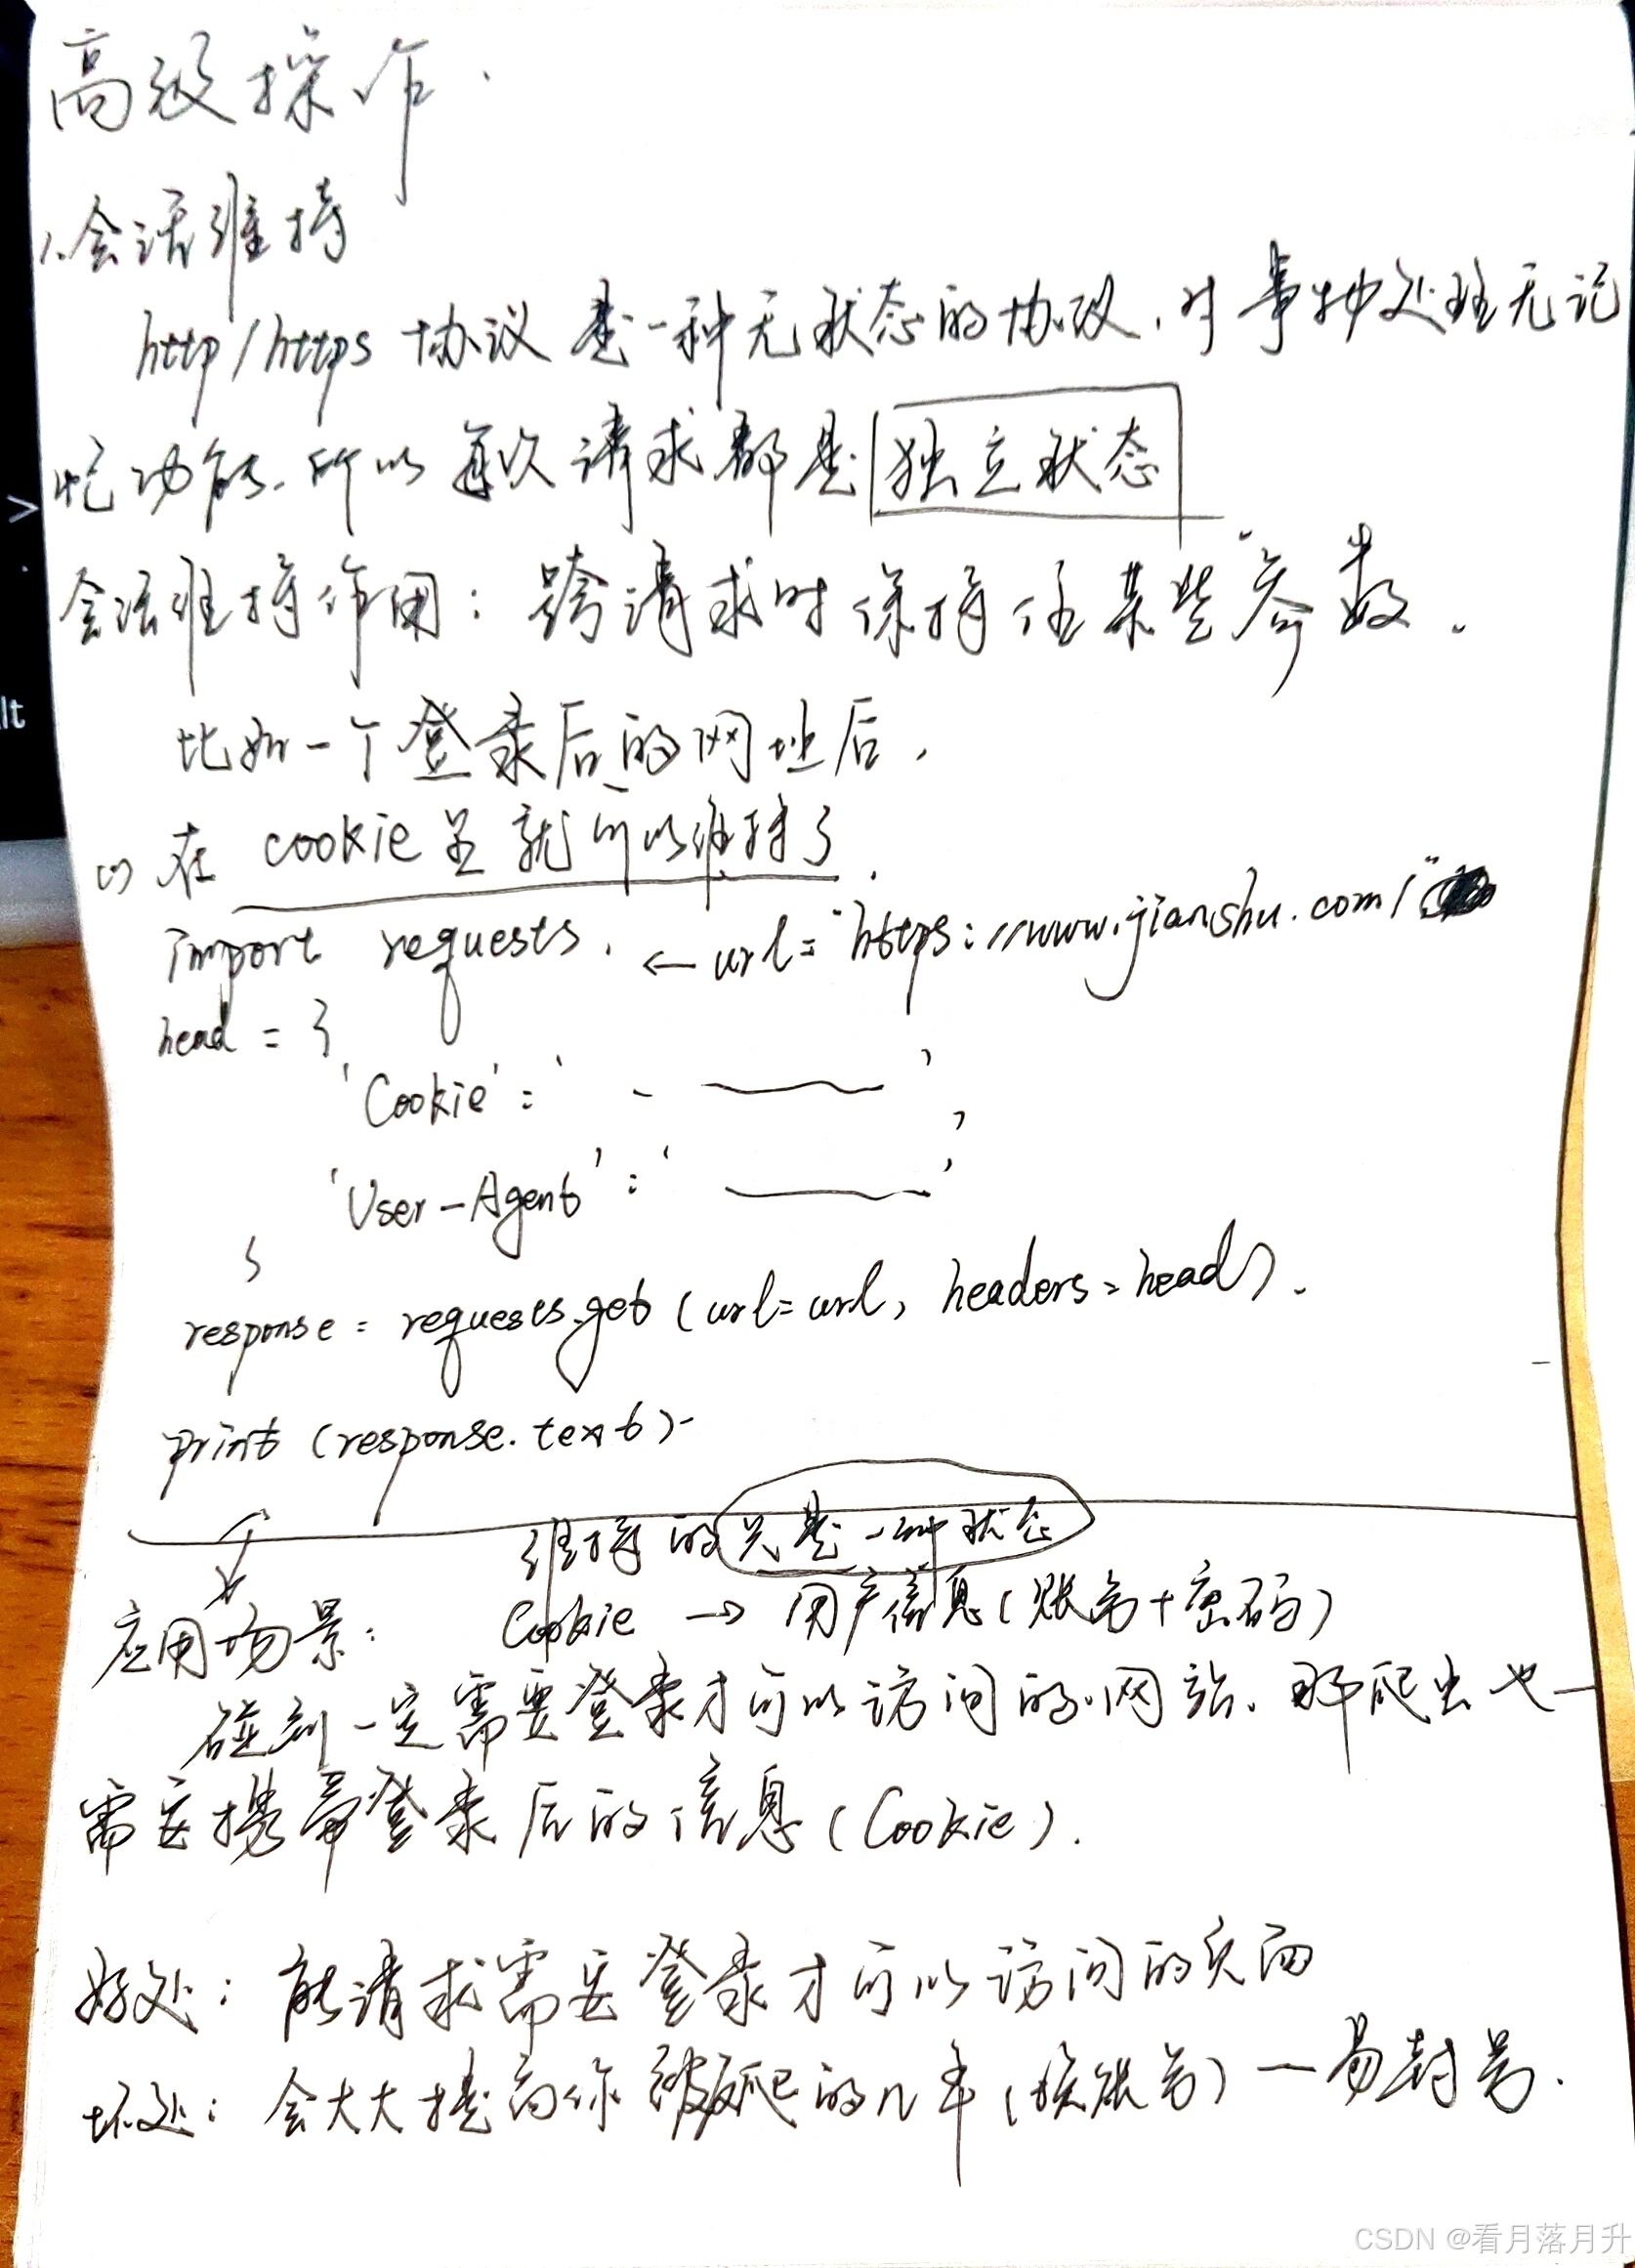 高级操作.
1.会话维持
http/https 协议是一种无状态的协议,对事物处理无记
忆功能.所以每次请求都是 独立状态
会话维持作用:跨请求时保持住某些"参数.
比如一个登录后的网址后,
(1) 在 cookie 里就可以维持了.
import requests. ← url="https://www.jianshu.com/"
head = {
'Cookie':' - ',
'User-Agent':' '
}
response = requests.get(url=url, headers=head).
print(response.text)-
维持的只是一种状态
Cookie → 用户信息(账号+密码)
应用场景:
碰到一定需要登录才可以访问的网站.那爬虫也
需要携带登录后的信息(Cookie).
好处: 能请求需要登录才可以访问的页面
坏处: 会大大提高你被反爬的几率(账号)一易封号.
>
lt
CSDN @看月落月升